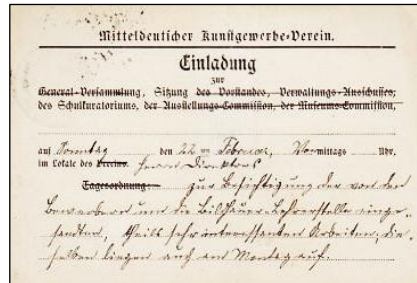 Mitteldeutscher Kunstgewerbe-Verein.
Einladung
zur
General-Versammlung, Sitzung des Vorstandes, Verwaltungs-Ausschusses,
des Schulkuratoriums, der Ausstellungs-Commission, der Museums-Commission,
auf Sonntag den 22ten Februar, Vormittags Uhr,
im Lokale des Vereins. Herrn Direktors
Tagesordnung: zur Besichtigung der von den
Bewerbern um die Bildhauer-Lehrerstelle einge-
sandten, theils sehr interessanten Arbeiten; die-
selben liegen auch am Montag auf.